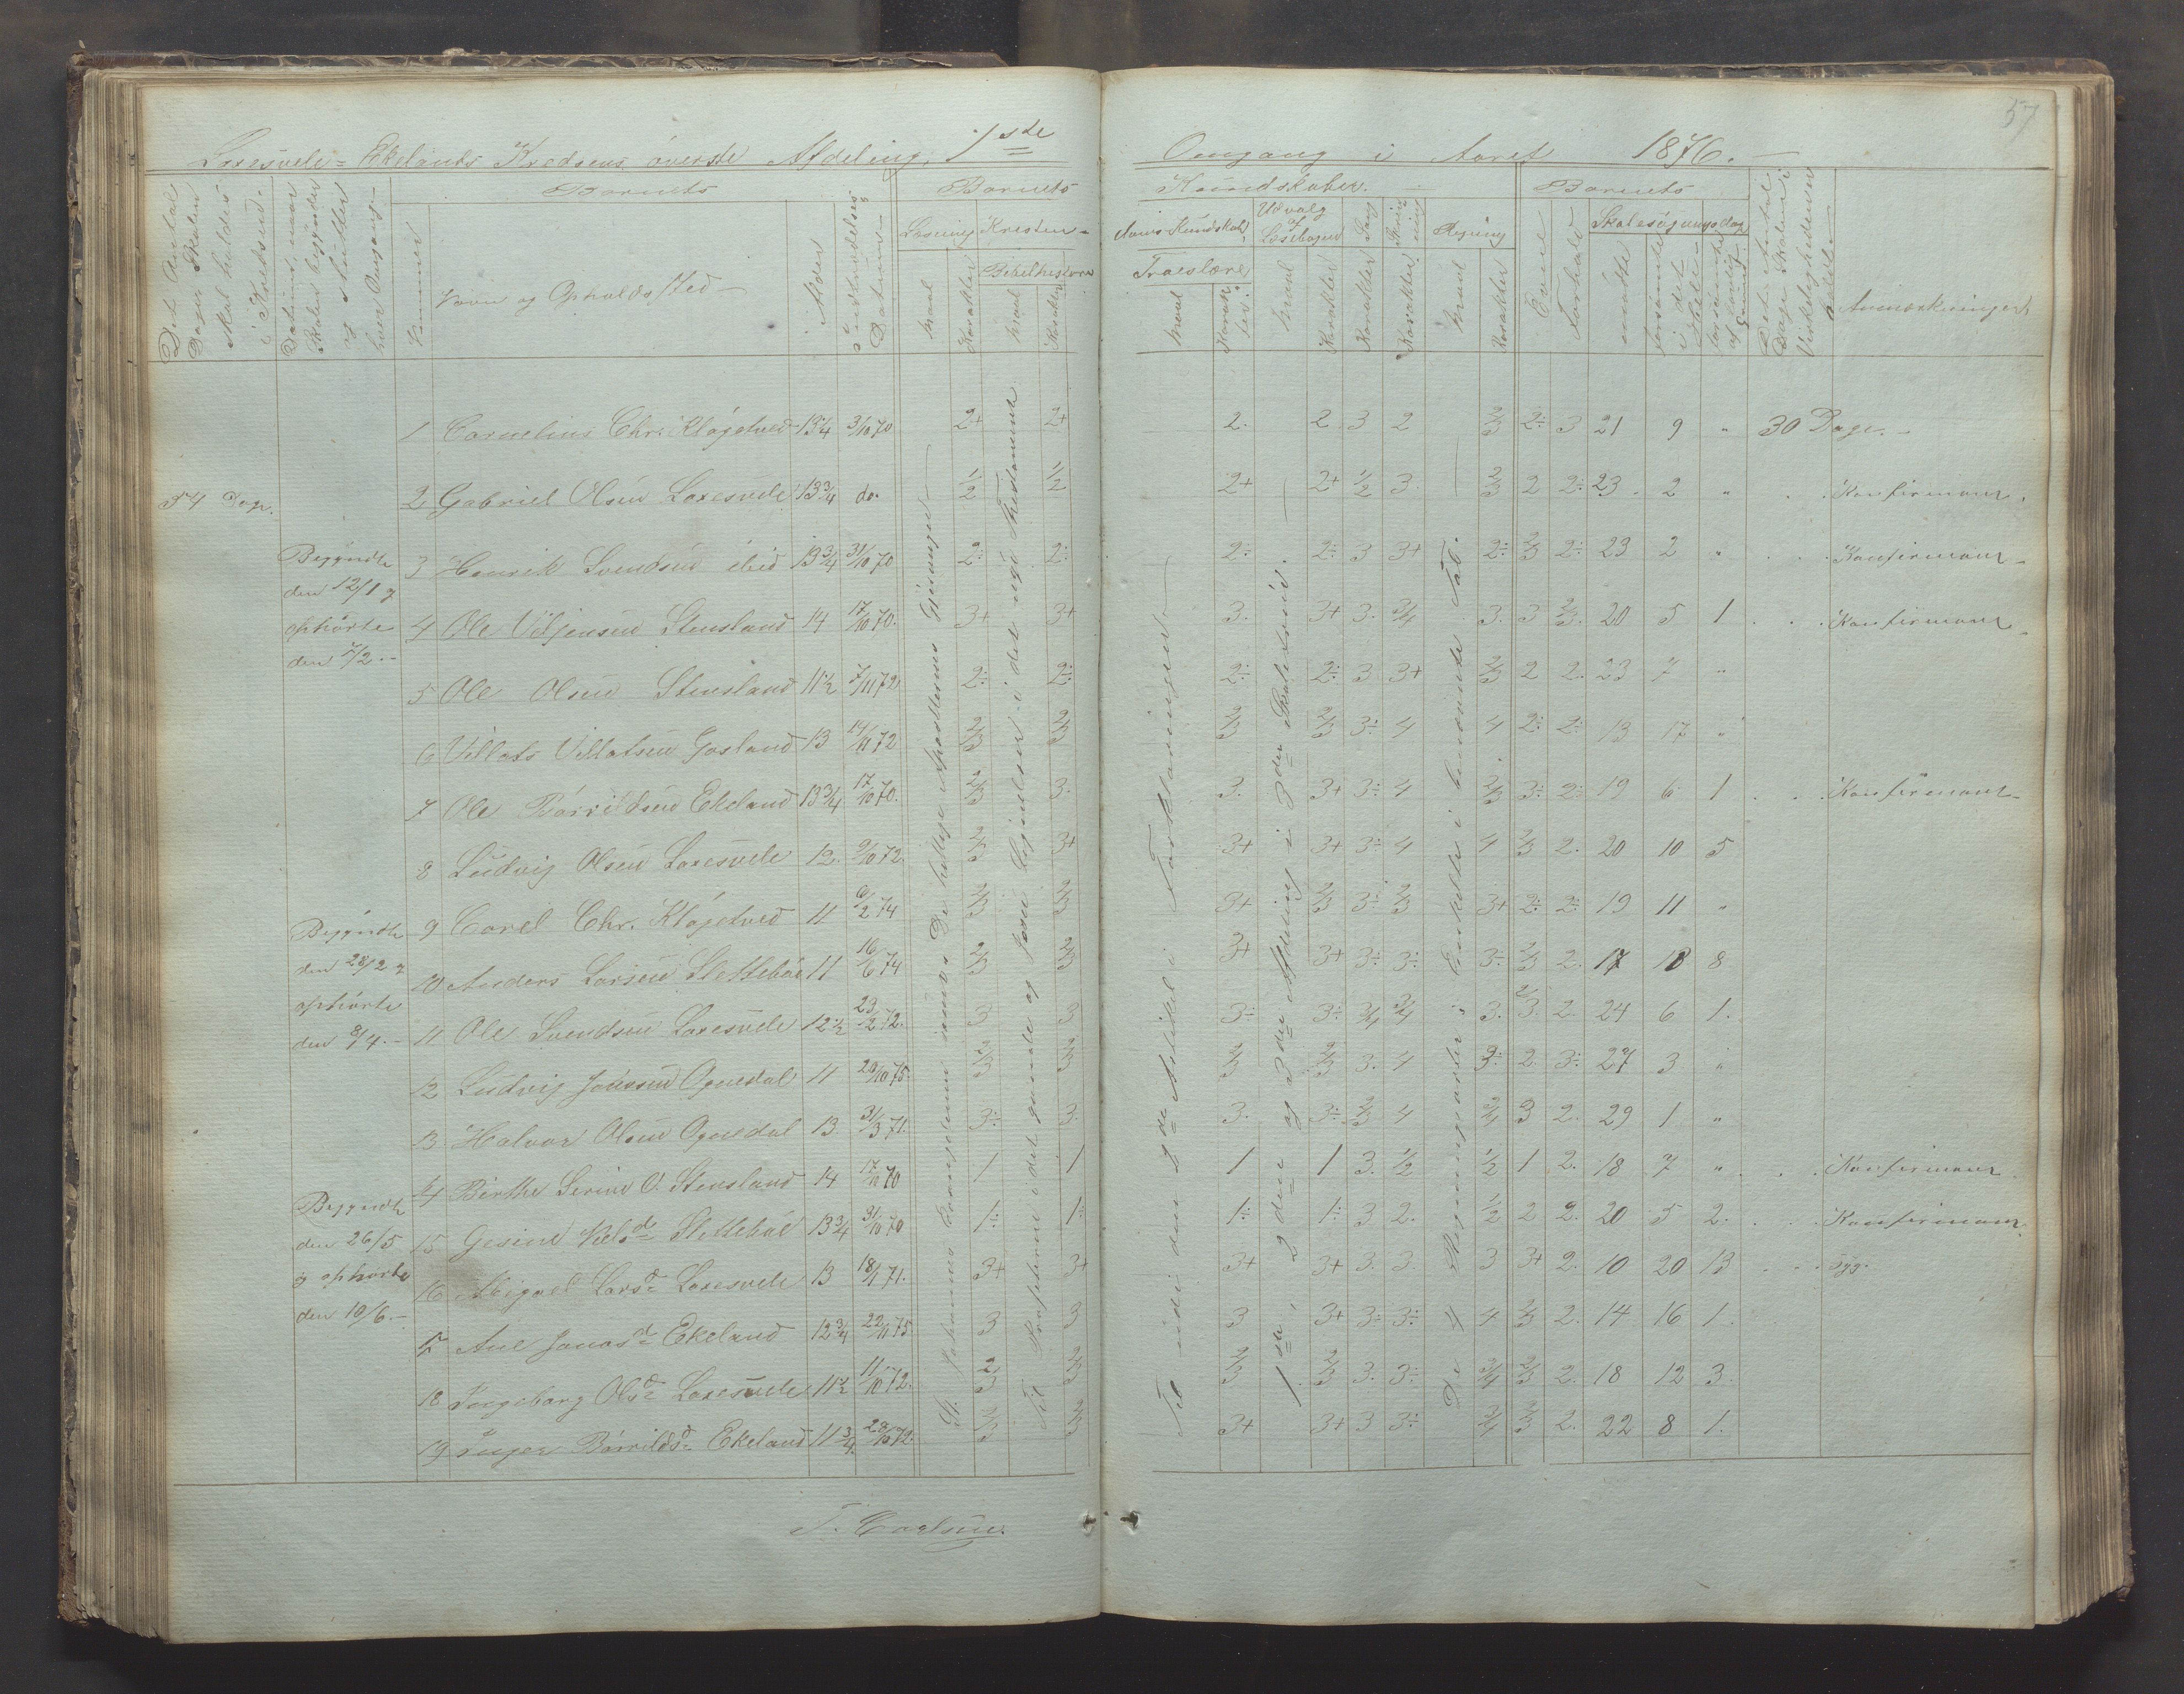 57
Laxesvele = Ekelands Kredsens överste Afdeling. 1ste Omgang i Aaret 1876.
Det Antal Dage Skolen skal holdes i Kredsen.
Datum, naar Skolen begynder og slutter hver Omgang
Barnets
Nummer
Navn og Opholds sted
Alder
Indtrædelses Datum
Barnets Kundskaber.
Læsning
Maal
Karakter
Kristendoms-Kundskab
Bibelhistorie
Maal
Karakter
Troeslære
Maal
Karakter
Udvalg af Læsebogen
Maal
Karakter
Sang
Karakter
Skrivning
Karakter
Regning
Maal
Karakter
Barnets
Evne
Forhold
Skolesögningsdage
mödte
forsömte i det Hele
forsömte af lovlig Grund
Det Antal Dage Skolen i Virkeligheden er holdt
Anmærkninger.
54 Dage.
Begyndte den 12/1 og ophörte den 7/2.
Begyndte den 28/2 og ophörte den 8/4.
Begyndte den 26/5 og ophörte den 10/6.
1 Cornelius Chr. Klöjetved 13 3/4 3/10 70 2+ 2+ 2. 2 3 2 2/3 2÷ 3 21 9 " 30 Dage.
2 Gabriel Olsen Laxesvele 13 3/4 do. 1/2 1/2 2+ 2+ 1/2 3. 2/3 2 2÷ 23. 2 " Konfirmant.
3 Henrik Svendsen ibid 13 3/4 31/10 70 2÷ 2÷ 2÷ 2÷ 3 3+ 2÷ 2/3 2÷ 23 2 " Konfirmant
4 Ole Viljensen Stensland 14 17/10 70. 3+ 3+ 3. 3+ 3. 3/4 3. 3 2/3. 20 5 1 Konfirmant
5 Ole Olsen Stensland 11 1/2 7/11 72 2÷ 2÷ 2÷ 2÷ 3 3+ 2/3 2 2. 23 7 "
6 Villats Villatsen Gosland 13 14/11 72 2/3 2/3 2/3 2/3 3÷ 4 4 2÷ 2÷ 13 17 "
7 Ole Börrildsen Ekeland 13 3/4 17/10 70. 2/3 3. 3. 3+ 3÷ 4 2/3 3÷ 2÷ 19 6 1 Konfirmant
8 Ludvig Olsen Laxesvele 12. 9/10 72. 2/3 3+ 3+ 3+ 3÷ 4 4 2/3 2. 20 10 5
9 Carel Chr. Klöjetved 11 6/2 74 2/3 2/3 3+ 2/3 3÷ 2/3 3+ 2÷ 2÷ 19 11 "
10 Anders Larsen Sletteböe 11 16/6 74 2/3 2/3 3+ 3+ 3÷ 3÷ 3÷ 2/3 2. 17 18 8
11 Ole Svendsen Laxesvele 12 1/2 23/2 72. 3 3 3÷ 3÷ 3/4 3/4 3. 2/3. 2. 24 6 1.
12 Ludvig Jonssen Ognedal 11 20/10 75. 2/3 2/3 2/3 2/3 3. 4 3÷ 2. 3÷ 27 3 "
13 Halvor Olsen Ognedal 13. 31/3 71. 3÷ 3. 3. 3÷ 2/3 4 3/4 3 2. 29 1 "
14 Berthe Serine O. Stensland 14 17/10 70 1 1 1 1 3. 1/2 1/2 1 2. 18 7 " Konfirmant
15 Gesine Nielsd. Sletteböe 13 3/4 31/10 70 1÷ 1÷ 1÷ 1÷ 3 2. 1/2 2 2. 20 5 2. Konfirmant.
16 Abigael Larsd. Laxesvele 13 18/1 71. 3+ 3+ 3+ 3+ 3. 3. 3 3+ 2. 10 20 13 syg.
17 Ane Jonasd. Ekeland 12 3/4 22/11 75. 3 3 3 3+ 3÷ 3÷ 4 2/3 2. 14 16 1.
18 Ingeborg Olsd. Laxesvele 11 1/2 11/10 72. 2/3 2/3 2/3 2/3 3. 3÷ 3/4 2/3 2. 18 12 3.
19 Inger Börrildsd. Ekeland 11 3/4 28/10 72. 2/3 2/3 3+ 3+ 3 3÷ 3/4 2/3 2. 22 8 1.
St. Johannes Evangelium samt De hellige Apostlernes Gjerninger
Til Profeterne i det gamle og Jesu Lignelser i det nye Testamente
Til 3die Artikel i Forklaringen.
1ste, 2den og 3die Afdeling i 3die Skoletrin.
De 4 Regningsarter i Enkelte i benævnte Tal.
T. Carlsen.